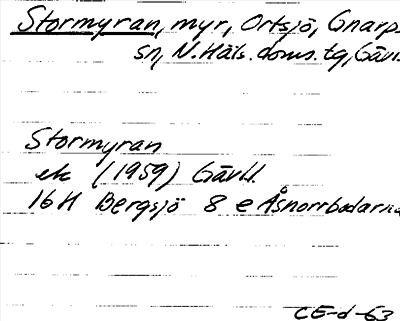 Stormyran, myr, Ortsjö, Gnarps
sn, N. Häls. doms. tg, Gävl.
Stormyran
ek (1959) Gävll.
16H Bergsjö 8 e Åsnorrbodarna
CE-d-63